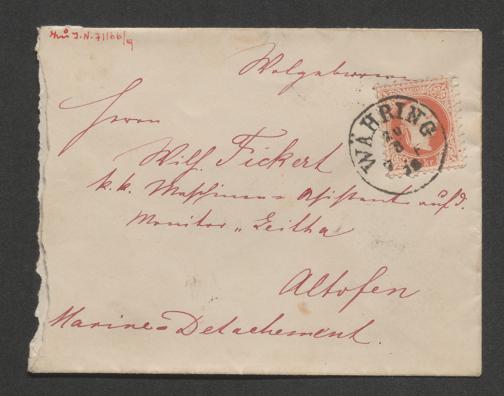 J.N. 71166/9
Wolgeboren
Herrn
Wilh. Fickert
k.k. Maschinen=Assistent auf d.
Monitor „Leitha
Altofen
Marine=Detachement.
WÄHRING